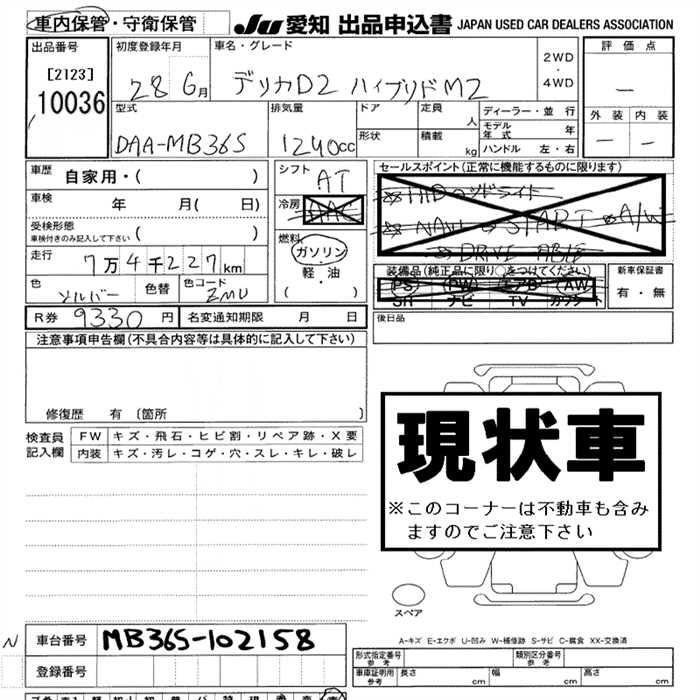 車内保管・守衛保管
JU 愛知 出品申込書 JAPAN USED CAR DEALERS ASSOCIATION
出品番号
[2123]
10036
初度登録年月
28 6月
車名・グレード
デリカD2 ハイブリドM2
2WD
・
4WD
評 価 点
—
外 装 内 装
— —
型式
DAA-MB36S
排気量
1240cc
ドア
形状
定員
人
積載
kg
ディーラー・並 行
モデル
年 式 年
ハンドル 左・右
車歴
自家用・( )
車検 年 月( 日)
受検形態
車検付きのみ記入して下さい ( )
走行
7万4千227km
色
シルバー
色替
色コード
ZMU
R券 9330円
名変通知期限 月 日
シフト
AT
冷房
燃料
ガソリン
・
軽・油
( )
セールスポイント(正常に機能するものに限ります)
☆HIDヘッドライト
☆NAVI ☆START ☆A/W
☆DRIVE ABLE
装備品(純正品に限り○をつけてください)
(PS) (PW) エアB (AW)
SR ナビ TV カワシート
新車保証書
有・無
後日品
注意事項申告欄(不具合内容等は具体的に記入して下さい)
修復歴 有 〔箇所 〕
検査員
記入欄
FW キズ・飛石・ヒビ割・リペア跡・X要
内装 キズ・汚レ・コゲ・穴・スレ・キレ・破レ
現状車
※このコーナーは不動車も含み
ますのでご注意下さい
スペア
A-キズ E-エクボ U-凹み W-補修跡 S-サビ C-腐食 XX-交換済
N
車台番号 MB36S-102158
登録番号
形式指定番号
参 考
類別区分番号
参 考
車庫証明用
参 考
長さ cm
幅 cm
高さ cm